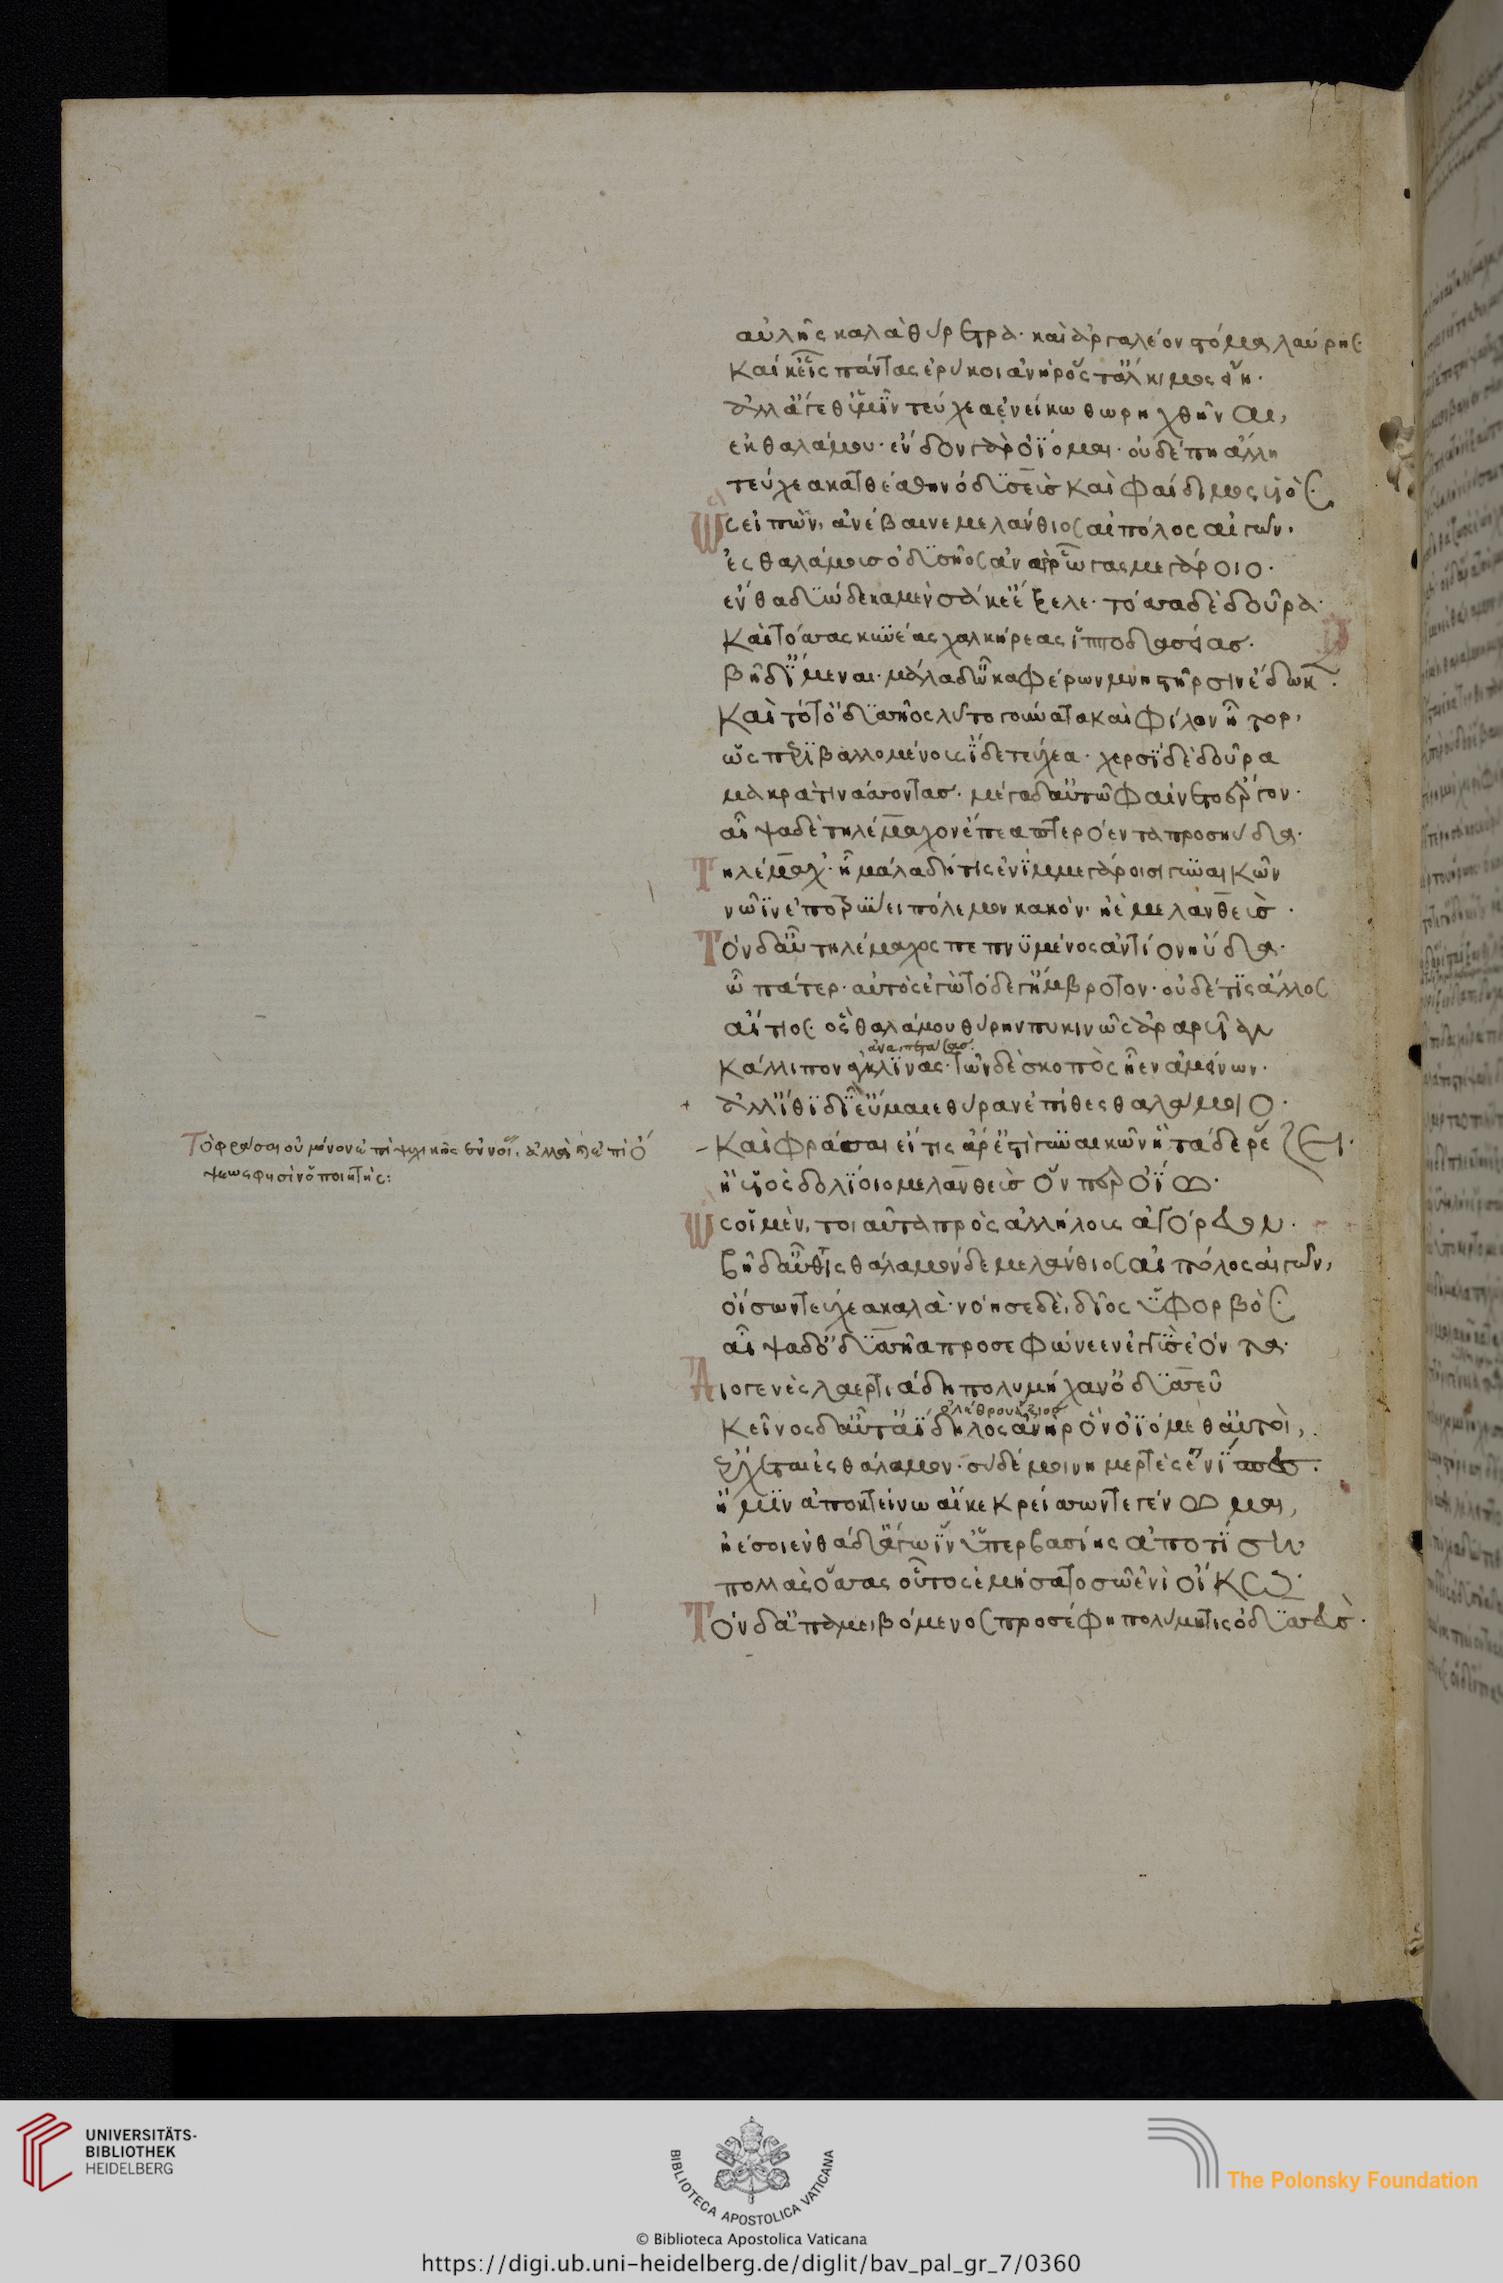 αὐλῆς καλὰ θύρετρα· καὶ ἀργαλέον στόμα λαύρης·
Καί χ' εἷς πάντας ἐρύκοι ἀνὴρ ὅς τ' ἄλκιμος εἴη·
ἀλλ' ἄγεθ' ὑμῖν τεύχεα ἐνείκω θωρηχθῆναι,
ἐκ θαλάμου· ἔνδον γὰρ ὀΐομαι· οὐδέ πη ἄλλη
τεύχεα κατθέσθην ὀδυσεὺς Καὶ Φαίδιμος υἱός·
Ὣς εἰπὼν, ἀνέβαινε μελάνθιος αἰπόλος αἰγῶν,
ἐς θαλάμους ὀδυσῆος ἀνὰ ῥῶγας μεγάροιο·
ἔνθα δυώδεκα μὲν σάκε' ἔξελε· τόσσα δὲ δοῦρα·
Καὶ τόσσας κυνέας χαλκήρεας ἱπποδασείας·
βῆ δ' ἴμεναι· μάλα δ' ὦκα Φέρων μνηστῆρσιν ἔδωκε·
Καὶ τότ' ὀδυσσῆος λύτο γούνατα Καὶ Φίλον ἦτορ,
ὡς περιβαλλομένους ἴδε τεύχεα· χερσί δὲ δοῦρα
μακρὰ τινάσσοντας· μέγα δ' αὐτῶ Φαίνετο ἔργον·
αἶψα δὲ τηλέμαχον ἔπεα πτερόεντα προσηύδα·
Τηλέμαχ'· ἦ μάλα δή τις ἐνὶ μμεγάροισι γυναικῶν
νῶϊν ἐποτρύνει πόλεμον κακόν· ἠὲ μελανθεύς·
Τὸν δ' αὖ τηλέμαχος πεπνυμένος ἀντίον ηὔδα·
ὦ πάτερ· αὐτὸς ἐγὼ τόδε γ' ἤμβροτον· οὐδέ τις ἄλλος
αἴτιος· ὃς θαλάμου θύρην πυκινῶς ἀραρυῖαν
ἀναπετάσας·
Κάλλιπον ἀγκλίνας· τῶν δὲ σκοπὸς ἦεν ἀμείνων·
ἀλλ' ἴθι δῖ' εὔμαιε θύραν ἐπίθες θαλάμοιο·
Τὸ φράσαι οὐ μόνον ἐπὶ ψυχικῆς ἐννοί, ἀλλὰ κ ἐπὶ ὄ
ψεως φησὶν ὁ ποιητής:
Καὶ Φράσαι εἴ τις ἄρ' ἐστὶ γυναικῶν ἣ τάδε ῥέζει·
ἢ υἱὸς δολίοιο μελανθεὺς ὅν περ ὀΐω·
Ὣς οἱ μὲν, τοιαῦτα πρὸς ἀλλήλους ἀγόρευον·
βῆ δ' αὖθις θάλαμόνδε μελάνθιος αἰπόλος αἰγῶν,
οἴσων τεύχεα καλὰ· νόησε δὲ, δῖος ὑφορβὸς·
αἶψα δ' ὀδυσσῆα προσεφώνεεν ἐγγὺς ἐόντα·
Διογενὲς λαερτιάδη πολυμήχαν' ὀδυσσεῦ
ὀλέθρου ἄξιος
Κεῖνος δ' αὖτ' ἀΐδηλος ἀνὴρ ὃν ὀϊόμεθ' αὐτοὶ,
ἔρχεται ἐς θάλαμον· σὺ δέ μοι νημερτὲς ἐνίσπες·
ἤ μιν ἀποκτείνω αἴ κε Κρείσσων γε γένωμαι,
ἠέ σοι ἐνθάδ' ἄγω ἵν' ὑπερβασίης ἀποτίσῃ
πολλὰς ὅσσας οὗτος ἐμήσατο σῶ ἐνὶ οἴκω·
Τὸν δ' ἀπαμειβόμενος προσέφη πολύμητις ὀδυσσεύς·
UNIVERSITÄTS-
BIBLIOTHEK
HEIDELBERG
BIBLIOTECA APOSTOLICA VATICANA
The Polonsky Foundation
© Biblioteca Apostolica Vaticana
https://digi.ub.uni-heidelberg.de/diglit/bav_pal_gr_7/0360